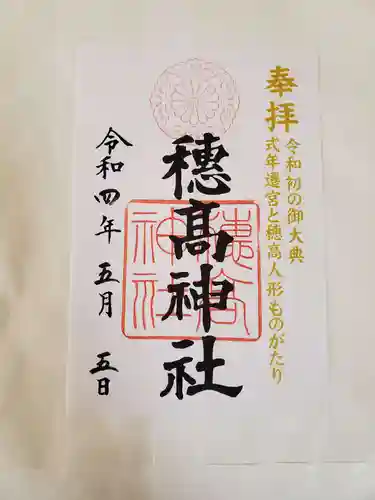 奉拝
令和初の御大典
式年遷宮と穂高人形ものがたり
穗髙神社
穂高神社
令和四年 五月 五日